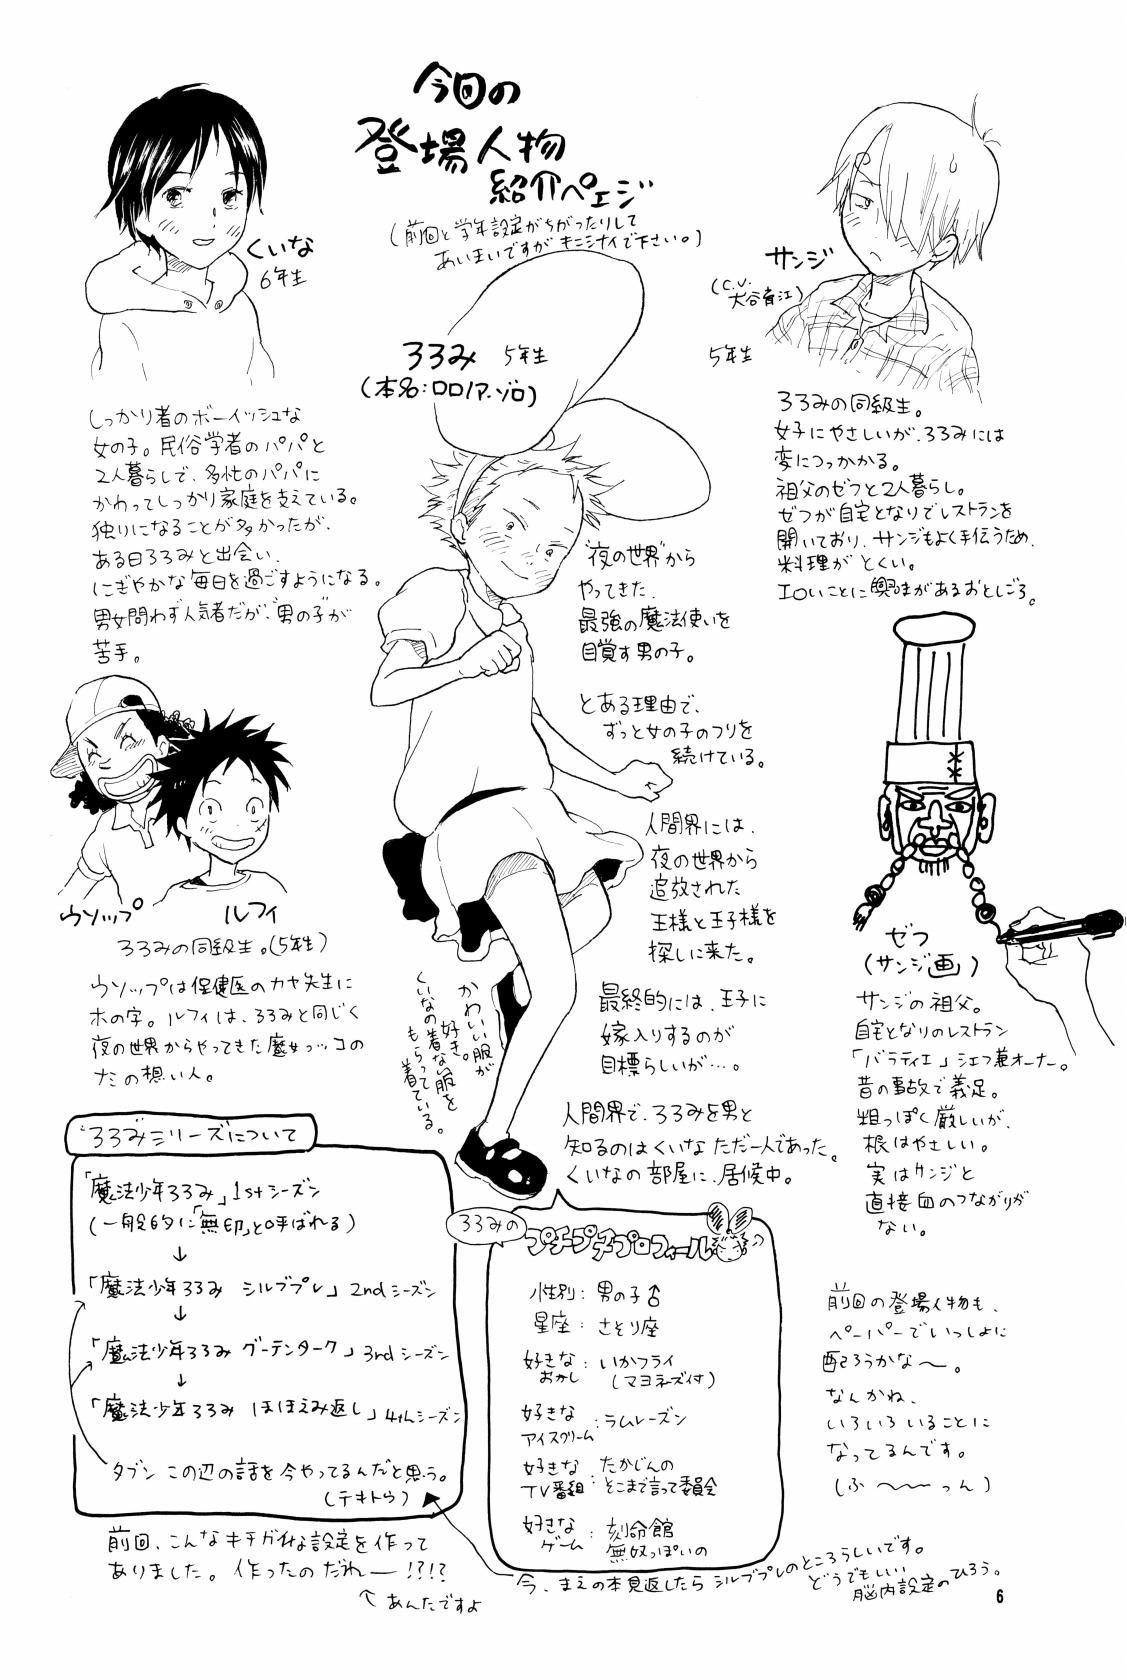 今回の
登場人物
紹介ペェジ
(前回と学年設定がちがったりして
あいまいですがキニシナイで下さい。)
くいな
6年生
しっかり者のボーイッシュな
女の子。民俗学者のパパと
2人暮らしで、多忙のパパに
かわってしっかり家庭を支えている。
独りになることが多かったが、
ある日ろろみと出会い、
にぎやかな毎日を過ごすようになる。
男女問わず人気者だが、"男の子"が
苦手。
ろろみ 5年生
(本名:ロロノア.ゾロ)
"夜の世界"から
やってきた、
最強の魔法使いを
目覚す男の子。
とある理由で、
ずっと女の子のフリを
続けている。
人間界には、
夜の世界から
追放された
王様と王子様を
探しに来た。
最終的には、王子に
嫁入りするのが
目標らしいが…。
人間界で、ろろみを男と
知るのはくいなただ一人であった。
くいなの部屋に、居候中。
かわいい服が
好き。
くいなの着ない服を
もらって
着ている。
サンジ
(C.V.
大谷育江)
5年生
ろろみの同級生。
女子にやさしいが、ろろみには
変につっかかる。
祖父のゼフと2人暮らし。
ゼフが自宅となりでレストランを
開いており、サンジもよく手伝うため、
料理がとくい。
エロいことに興味があるおとしごろ。
ウソップ
ルフィ
ろろみの同級生。(5年生)
ウソップは保健医のカヤ先生に
ホの字。ルフィは、ろろみと同じく
夜の世界からやってきた魔女っコの
ナミの想い人。
ゼフ
(サンジ画)
サンジの祖父。
自宅となりのレストラン
「バラティエ」シェフ兼オーナー。
昔の事故で義足。
粗っぽく厳しいが、
根はやさしい。
実はサンジと
直接血のつながりが
ない。
"ろろみ"シリーズについて
「魔法少年ろろみ」1stシーズン
(一般的に「無印」と呼ばれる)
↓
「魔法少年ろろみ シルブプレ」2ndシーズン
↓
「魔法少年ろろみ グーテンターク」3rdシーズン
↓
「魔法少年ろろみ ほほえみ返し」4thシーズン
タブン この辺の話を今やってるんだと思う。
(テキトウ)
前回、こんなキチガイな設定を作って
ありました。作ったのだれー!?!?
↑あんたですよ
ろろみの
プチプチプロフィール
性別:男の子♂
星座:さそり座
好きなおかし:いかフライ
(マヨネーズ付)
好きなアイスクリーム:ラムレーズン
好きなTV番組:たかじんの
そこまで言って委員会
好きなゲーム:刻命館
無双っぽいの
今、まえの本見返したらシルブプレのところらしいです。
どうでもいい
脳内設定のひろう。
前回の登場人物も、
ペーパーでいっしょに
配ろうかな〜。
なんかね、
いろいろいることに
なってるんです。
(ふ〜〜っん)
6